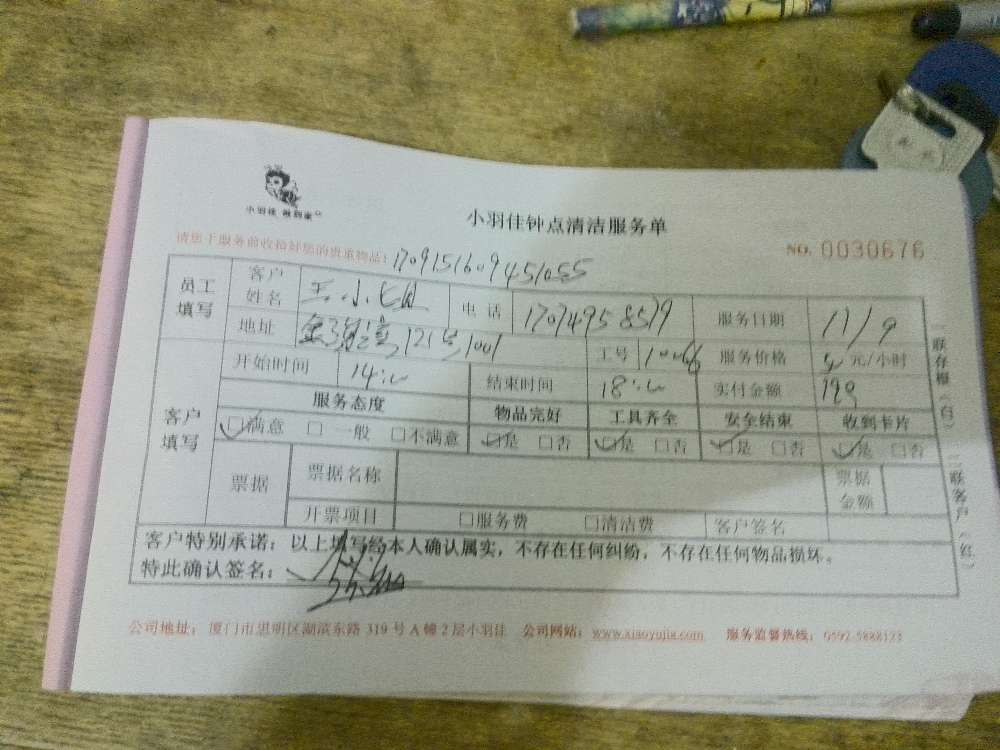 小羽佳 做到家
小羽佳钟点清洁服务单
请您于服务前收拾好您的贵重物品!
NO. 0030676
员工填写 客户姓名 王小七 电话 服务日期 11/9
地址 121号1001 工号 服务价格 元/小时
客户填写 开始时间 14:00 结束时间 18:00 实付金额
服务态度 物品完好 工具齐全 安全结束 收到卡片
□满意 □一般 □不满意 □是 □否 □是 □否 □是 □否 □是 □否
票据 票据名称 票据金额
开票项目 □服务费 □清洁费 客户签名
客户特别承诺:以上填写经本人确认属实,不存在任何纠纷,不存在任何物品损坏。
特此确认签名:
公司地址:厦门市思明区湖滨东路 319 号 A 幢 2 层小羽佳 公司网站:www.xiaoyujia.com 服务监督热线:0592-5888123
一联存根(白)
二联客户(红)